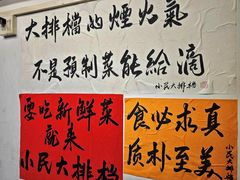 大排檔的煙火氣
不是預制菜能給滴
小民大排档
要吃新鮮菜
就来
小民大排档
食必求真
质朴至美
小民大排档